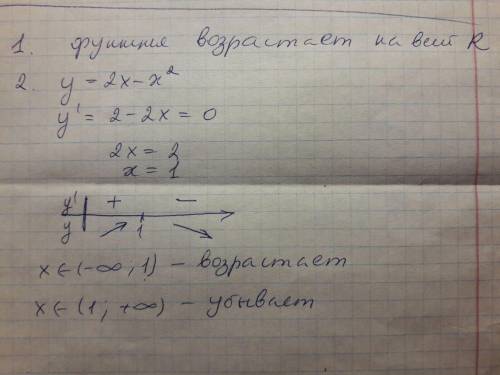 1. Функция возрастает на всей R
2. y = 2x - x²
y' = 2 - 2x = 0
2x = 2
x = 1
y' + -
y 1
x ∈ (-∞; 1) - возрастает
x ∈ (1; +∞) - убывает